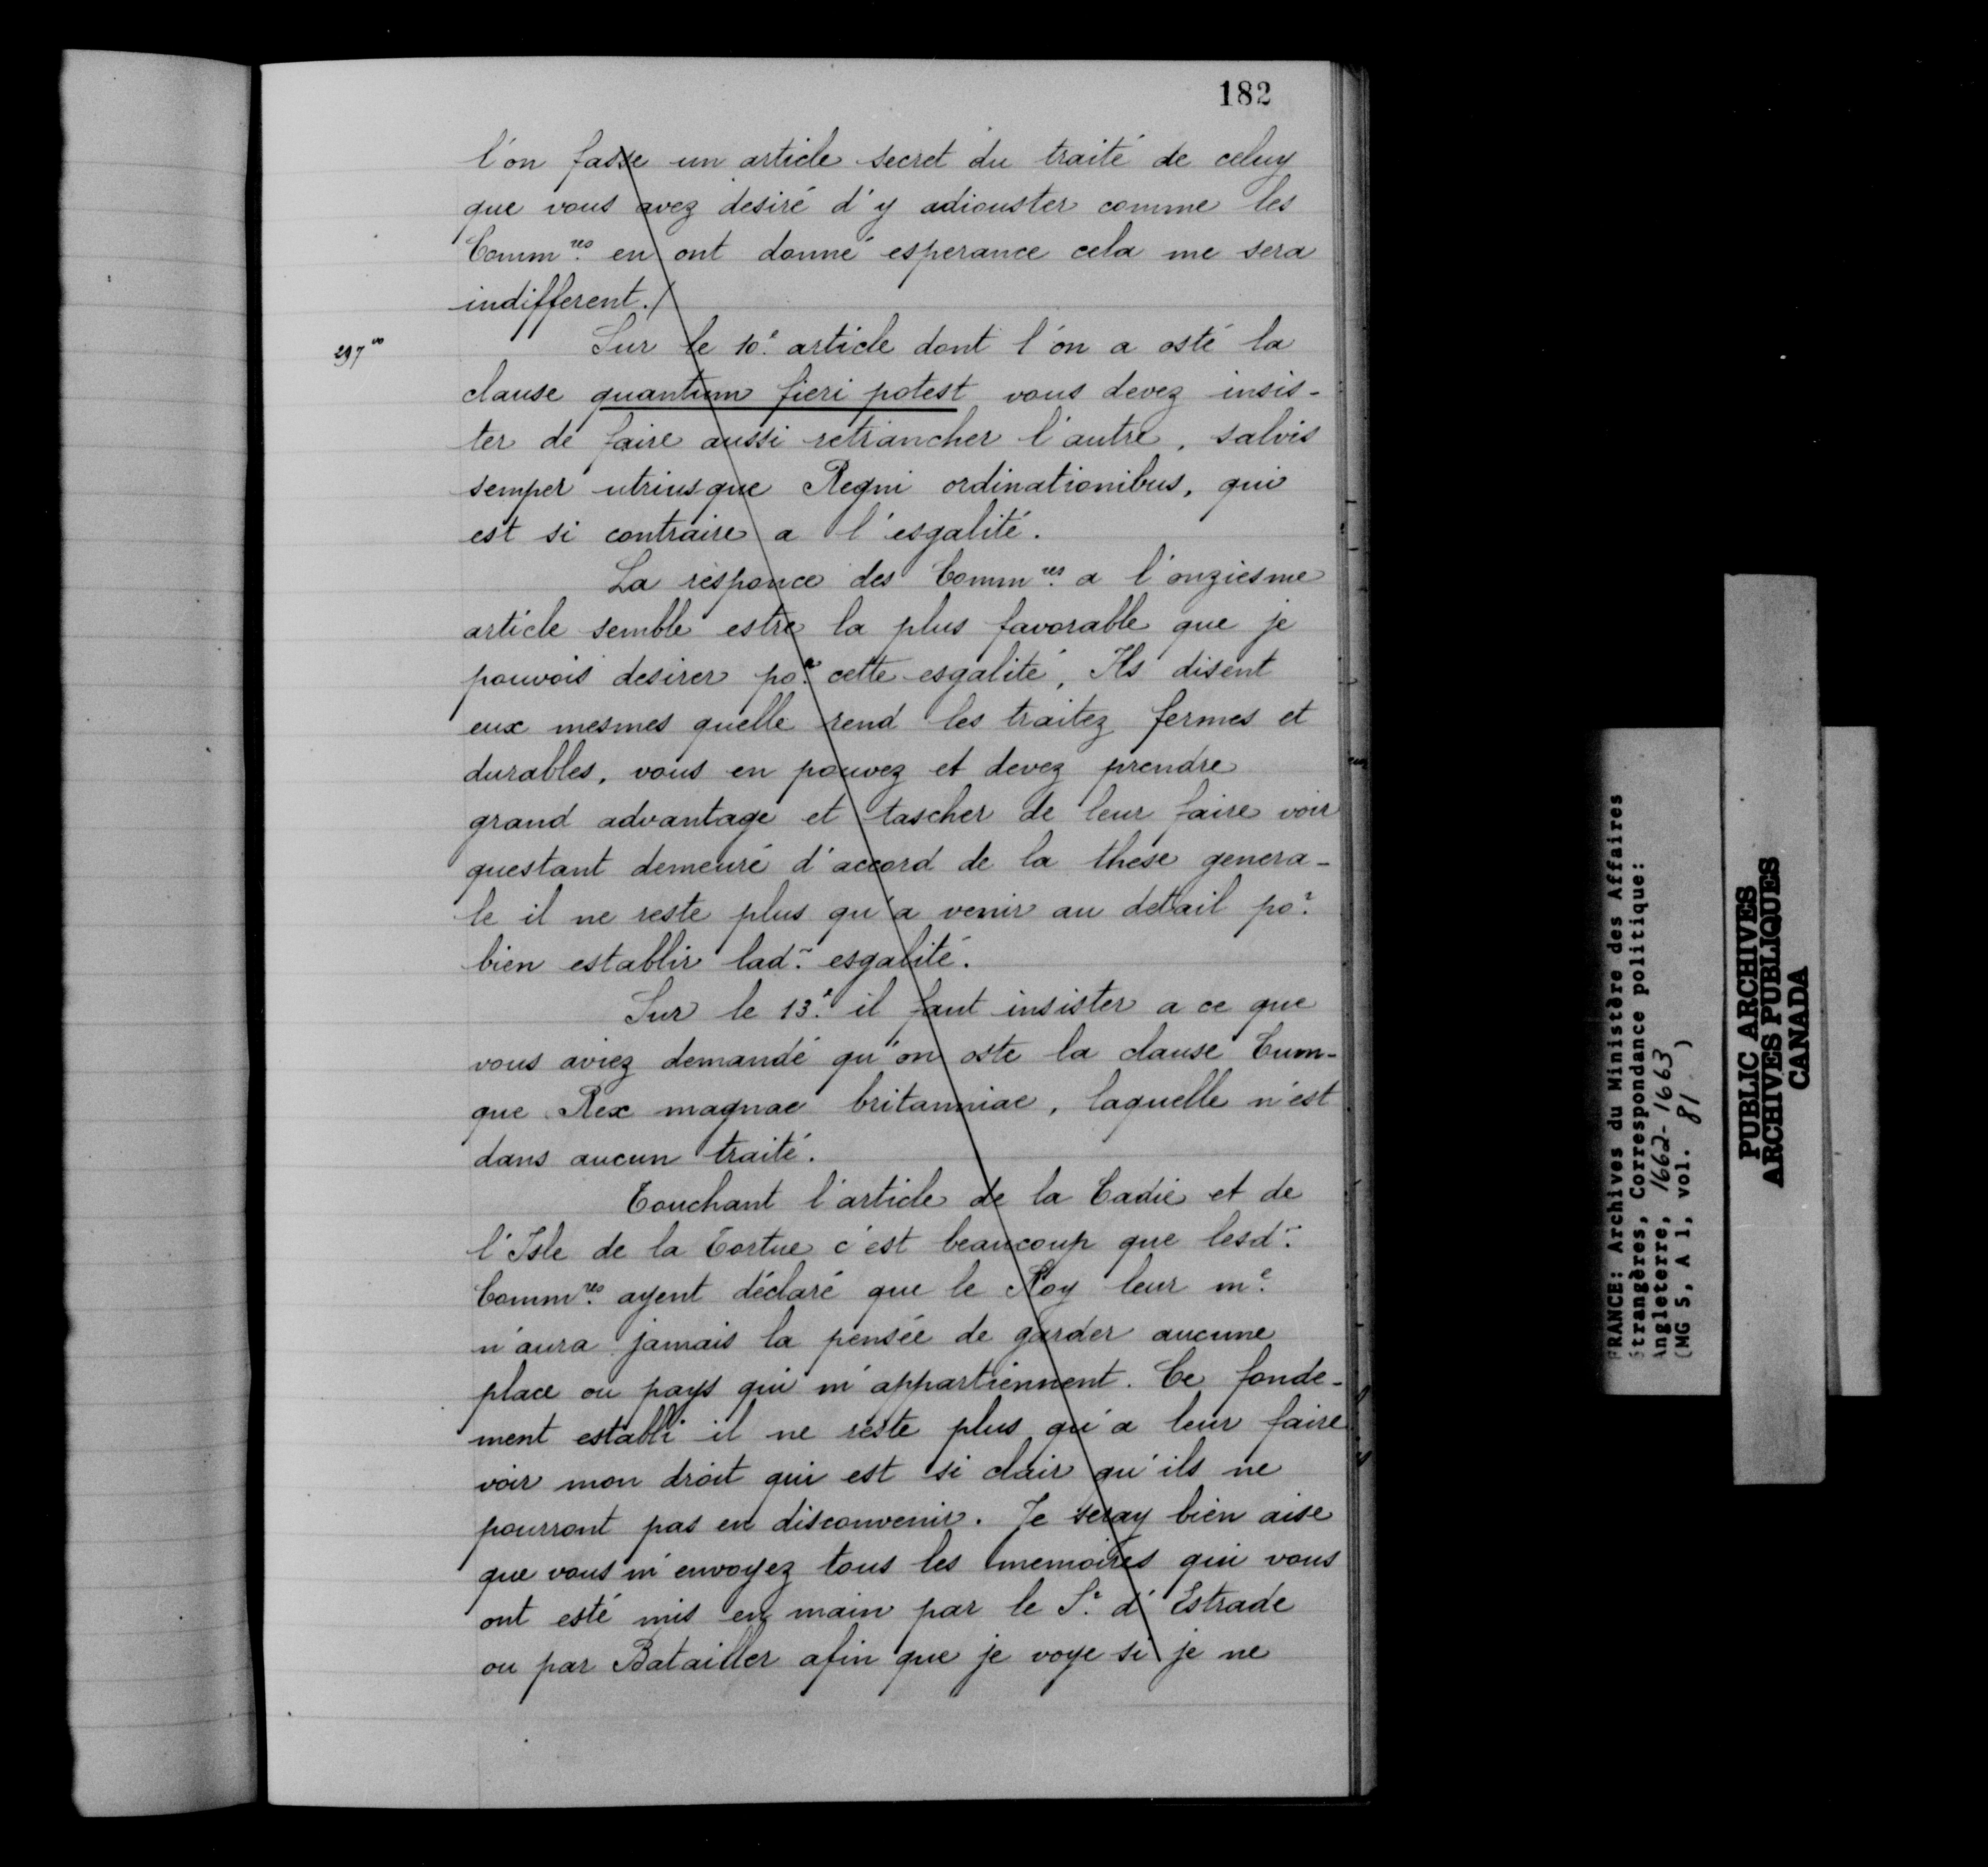 182
l'on fasse un article secret du traité de celuy
que vous avez desiré d'y adiouster comme les
Comm.res en ont donné esperance cela me sera
indifferent./
297 vo
Sur le 10.e article dont l'on a osté la
clause quantum fieri potest vous devez insis-
ter de faire aussi retrancher l'autre, salvis
semper utriusque Regni ordinationibus, qui
est si contraire a l'esgalité.
La responce des Comm.res a l'onziesme
article semble estre la plus favorable que je
pouvois desirer po.r cette esgalité, Ils disent
eux mesmes quelle rend les traitez fermes et
durables, vous en pouvez et devez prendre
grand advantage et tascher de leur faire voir
questant demeuré d'accord de la these genera-
le il ne reste plus qu'a venir au detail po.r
bien establir lad.~ esgalité.
Sur le 13.e il faut insister a ce que
vous aviez demandé qu'on oste la clause Cum-
que Rex magnae britanniae, laquelle n'est
dans aucun traité.
Touchant l'article de la Cadie et de
l'Isle de la Tortue c'est beaucoup que lesd.~
Comm.res ayent déclaré que le Roy leur m.e
n'aura jamais la pensée de garder aucune
place ou pays qui m'appartiennent. Ce fonde-
ment establi il ne reste plus qu'a leur faire
voir mon droit qui est si clair qu'ils ne
pourront pas en disconvenir. Je seray bien aise
que vous m'envoyez tous les memoires qui vous
ont esté mis en main par le S.r d'Estrade
ou par Batailler afin que je voye si je ne
FRANCE: Archives du Ministère des Affaires
Étrangères, Correspondance politique:
Angleterre, 1662-1663
(MG 5, A 1, vol. 81)
PUBLIC ARCHIVES
ARCHIVES PUBLIQUES
CANADA